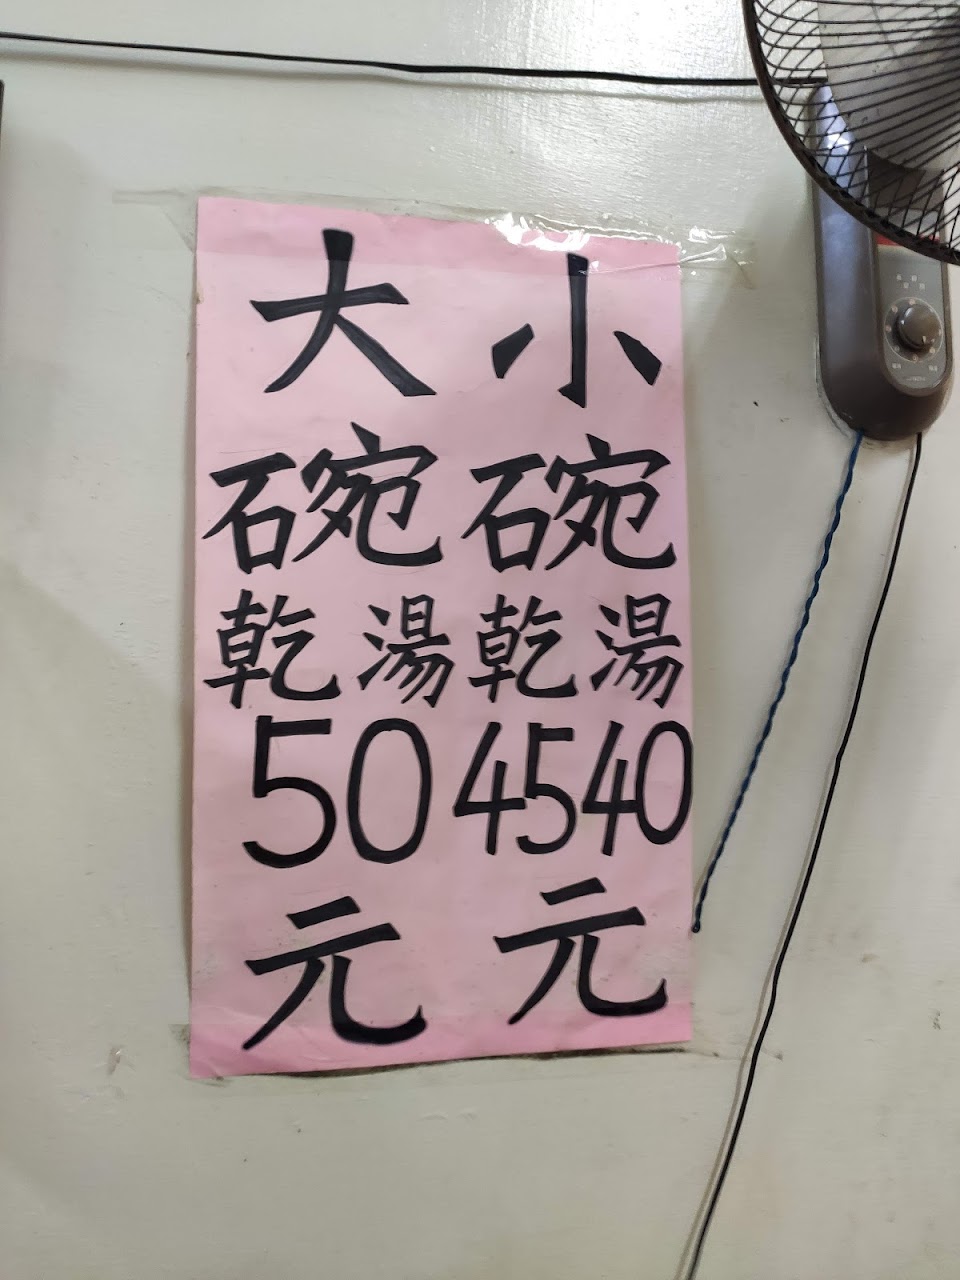 小碗
乾湯
4540
元
大碗
乾湯
50
元